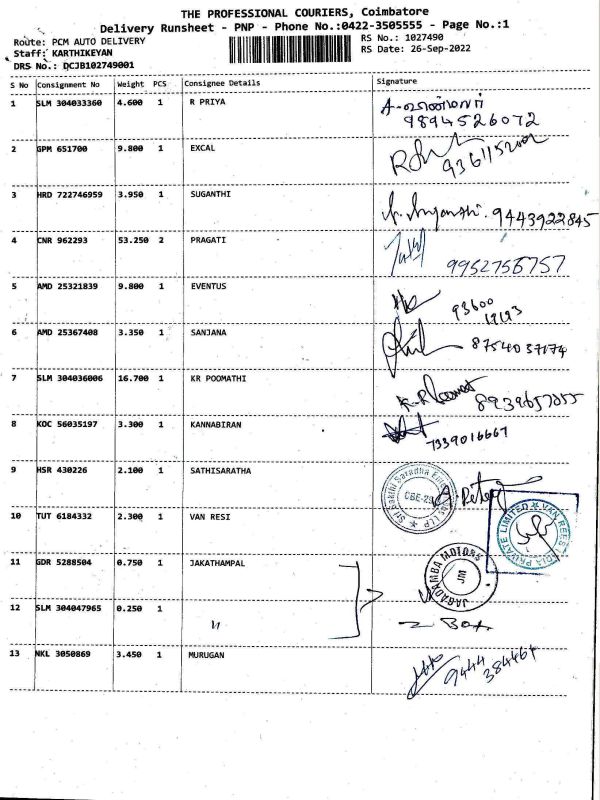 THE PROFESSIONAL COURIERS, Coimbatore
Delivery Runsheet - PNP - Phone No.:0422-3505555 - Page No.:1
Route: PCM AUTO DELIVERY
RS No.: 1027490
Staff: KARTHIKEYAN
RS Date: 26-Sep-2022
DRS No.: DCJB102749001
S No Consignment No Weight PCS Consignee Details Signature
1 SLM 304033360 4.600 1 R PRIYA
9894526072
2 GPM 651700 9.800 1 EXCAL
3 HRD 722746959 3.950 1 SUGANTHI
9443922845
4 CNR 962293 53.250 2 PRAGATI
9952756757
5 AMD 25321839 9.800 1 EVENTUS
93600
6 AMD 25367408 3.350 1 SANJANA
8754037174
7 SLM 304036006 16.700 1 KR POOMATHI
K.R
8 KOC 56035197 3.300 1 KANNABIRAN
7339016667
9 HSR 430226 2.100 1 SATHISARATHA
10 TUT 6184332 2.300 1 VAN RESI
VAN REES
PRIVATE LIMITED
11 GDR 5288504 0.750 1 JAKATHAMPAL
JAGADAMBA MOTORS
JM
12 SLM 304047965 0.250 1 "
2 Box
13 NKL 3050869 3.450 1 MURUGAN
9444
384461